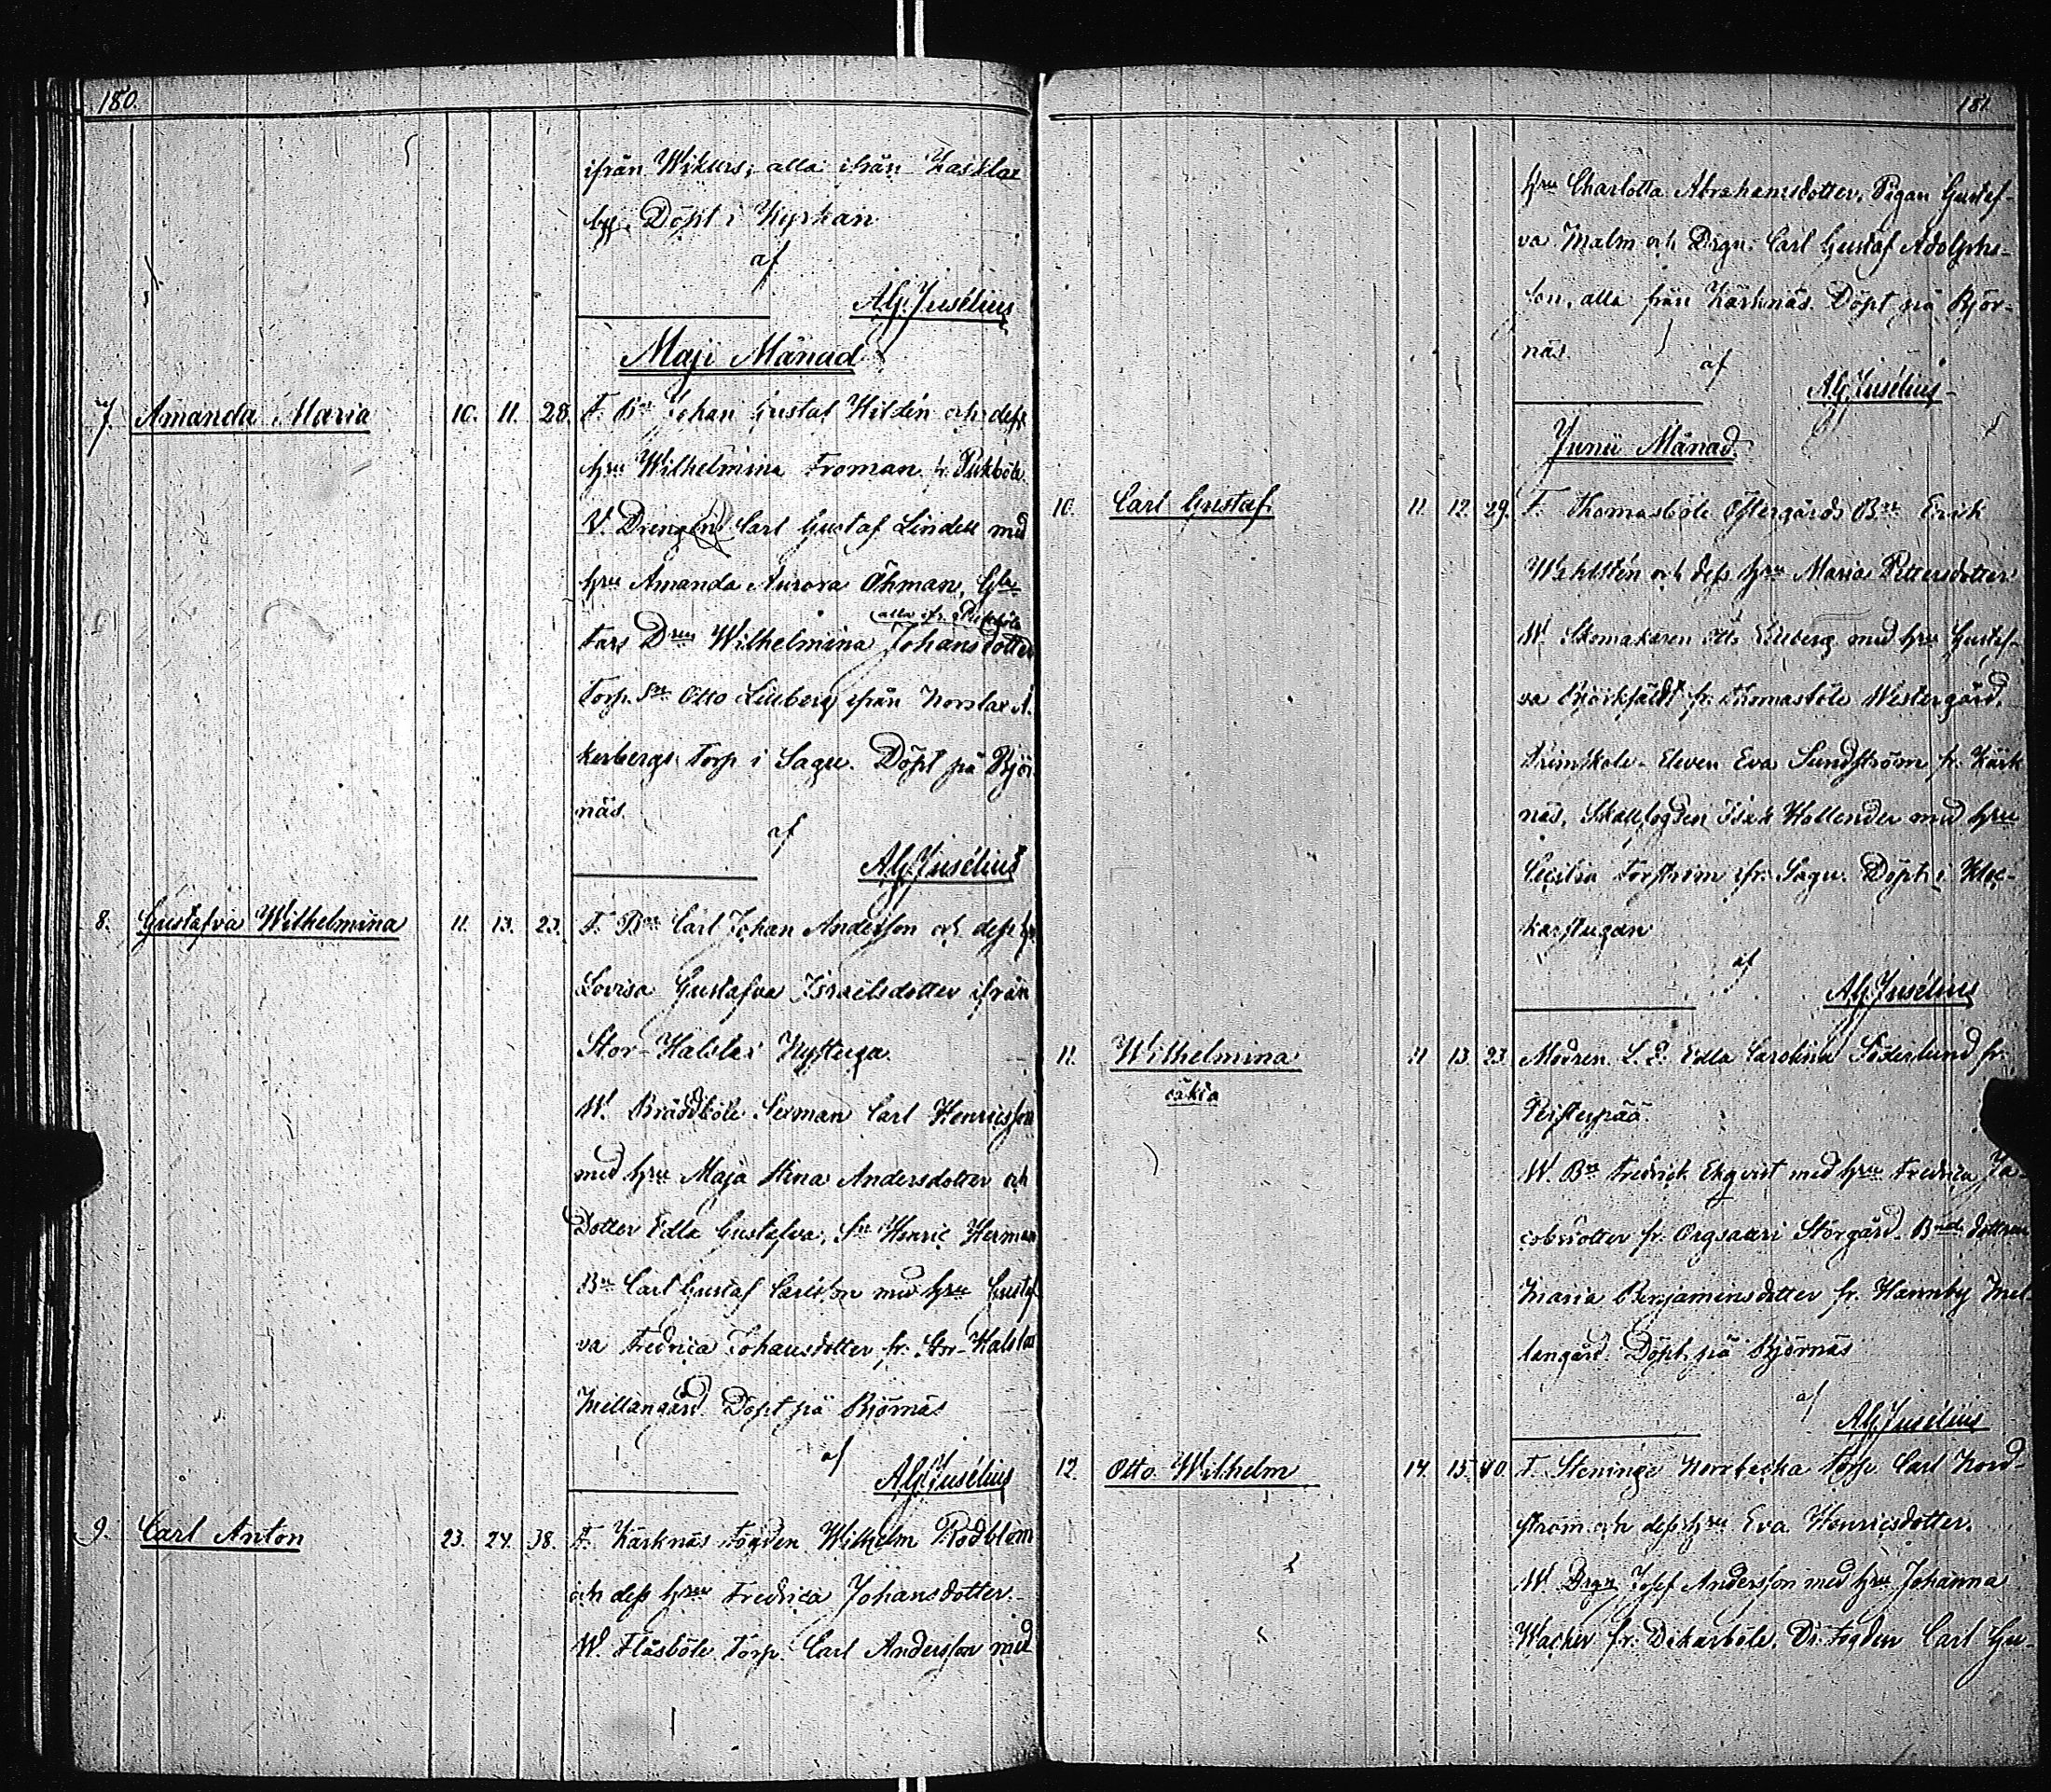 180.
ifrån Wikurs; alla ifrån Kasklax
by. Döpt i Kyrkan
af
Alf. Jusélius
Maji Månad
7. Amanda Maria 10. 11. 28. F. Bn Johan Gustaf Hildén och dess
hru Wilhelmina Froman fr. Pukböle.
V. Drengen Carl Gustaf Lindell med
hru Amanda Aurora Öhman,
alla ifr. Pukböle
tars Wilhelmina Johansdotter
Torp. Sn Otto Lilleberg ifrån Norrlax
kerbergs Torp i Sagu. Döpt på Björ
näs.
af
Alf. Jusélius
8. Gustafva Wilhelmina 11. 13. 23. F. Bn Carl Johan Andersson och dess
Lovisa Gustafva Israelsdotter ifrån
Stor-Halslax Nystuga
W. Bräddböle Sexman Carl Henricsson
med hru Maja Stina Andersdotter och
Dotter Edla Gustafva, Sn Henric Herman
Bn Carl Gustaf Carlsson med hru Gustaf
va Fredrica Johansdotter fr. Stor-Halslax
Mellangård. Döpt på Björnäs
af
Alf. Jusélius
9. Carl Anton 23. 24. 38. F. Kärknäs Fogden Wilhelm Rodblom
och dess hru Fredrica Johansdotter.
W. Flåsböle Torp. Carl Andersson med
181.
hru Charlotta Abrahamsdotter, Pigan Gustaf-
va Malm och Drgn. Carl Gustaf Adolphs-
son, alla från Kärknäs. Döpt på Björ-
näs.
af
Alf. Jusélius
Junii Månad
10. Carl Gustaf 11. 12. 29. F. Thomasböle Östergårds Bn Erich
Wahlstén och dess hru Maria Pettersdotter
W. Skomakaren Otto Lilleberg med hru Gustaf-
va Björkfäldt fr. Thomasböle Westergård.
Eleven Eva Sundström fr. Kärk
näs, Skallfogden Isak Hollender med hru
Cecilia Forsström ifr. Sagu. Döpt i Kloc-
karstugan
af
Alf. Jusélius
11. Wilhelmina 11 13. 23. Modren L. P. Edla Carolina Söderlund fr.
oäkta
Peisterpää.
W. Bn Fredrick Ekqvist med hru Fredrica Ja-
cobsdotter fr. Orgsaari Storgård. Bnde dottren
Maria Benjaminsdotter fr. Hamnby Mel
langård. Döpt på Björnäs
af
Alf. Jusélius
12. Otto Wilhelm 14. 15. 40. F. Steninge Norrbacka Torp. Carl Nord-
ström och dess hru Eva Henricsdotter.
W. Drgn Josef Andersson med hru Johanna
Wacker fr. Dikarböle. Di. Fogden Carl Gu-